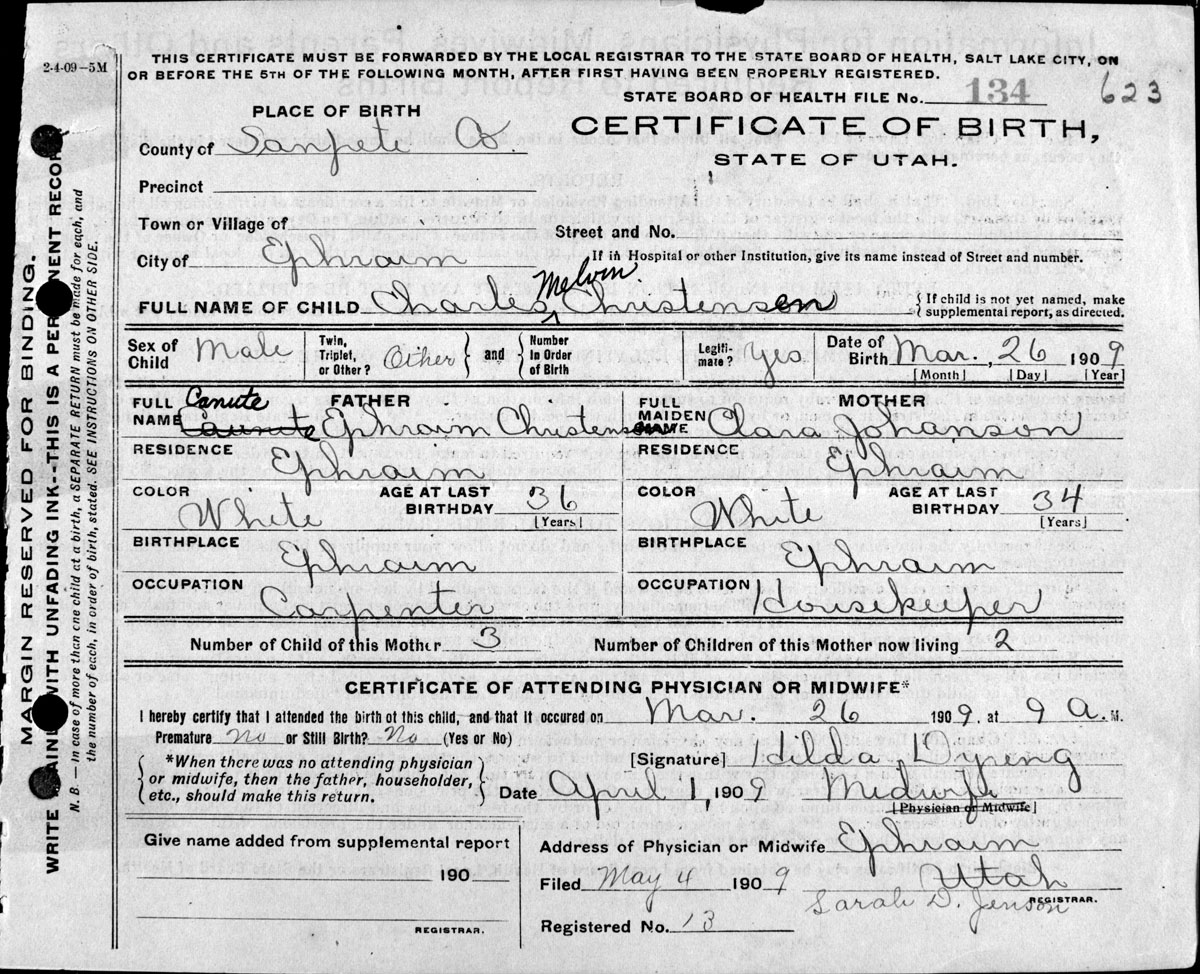 2-4-09-5M
THIS CERTIFICATE MUST BE FORWARDED BY THE LOCAL REGISTRAR TO THE STATE BOARD OF HEALTH, SALT LAKE CITY, ON
OR BEFORE THE 5TH OF THE FOLLOWING MONTH, AFTER FIRST HAVING BEEN PROPERLY REGISTERED.
STATE BOARD OF HEALTH FILE No. 134 623
PLACE OF BIRTH
CERTIFICATE OF BIRTH,
STATE OF UTAH.
County of Sanpete Co.
Precinct
Town or Village of
Street and No.
City of Ephraim
If in Hospital or other Institution, give its name instead of Street and number.
Melvin
FULL NAME OF CHILD Charles ^ Christensen
{ If child is not yet named, make
supplemental report, as directed.
Sex of Child Male
Twin, Triplet, or Other? Other } and { Number in Order of Birth
Legiti-mate? Yes
Date of Birth Mar., 26 1909
[Month] [Day] [Year]
FATHER
FULL NAME Canute Ephraim Christensen
RESIDENCE
Ephraim
COLOR White
AGE AT LAST BIRTHDAY 36
[Years]
BIRTHPLACE
Ephraim
OCCUPATION
Carpenter
MOTHER
FULL MAIDEN NAME Clara Johanson
RESIDENCE
Ephraim
COLOR White
AGE AT LAST BIRTHDAY 34
[Years]
BIRTHPLACE
Ephraim
OCCUPATION
Housekeeper
Number of Child of this Mother 3
Number of Children of this Mother now living 2
CERTIFICATE OF ATTENDING PHYSICIAN OR MIDWIFE*
I hereby certify that I attended the birth of this child, and that it occured on Mar. 26 1909, at 9 A. M.
Premature No or Still Birth? No (Yes or No)
*When there was no attending physician
or midwife, then the father, householder,
etc., should make this return.
[Signature] Hilda Dyreng
Date April 1, 1909 Midwife
[Physician or Midwife]
Give name added from supplemental report
190
REGISTRAR.
Address of Physician or Midwife Ephraim
Utah
Filed May 4 1909
Sarah D. Jenson
REGISTRAR.
Registered No. 13
MARGIN RESERVED FOR BINDING.
WRITE PLAINLY WITH UNFADING INK--THIS IS A PERMANENT RECORD
N. B. — In case of more than one child at a birth, a SEPARATE RETURN must be made for each, and
the number of each, in order of birth, stated. SEE INSTRUCTIONS ON OTHER SIDE.